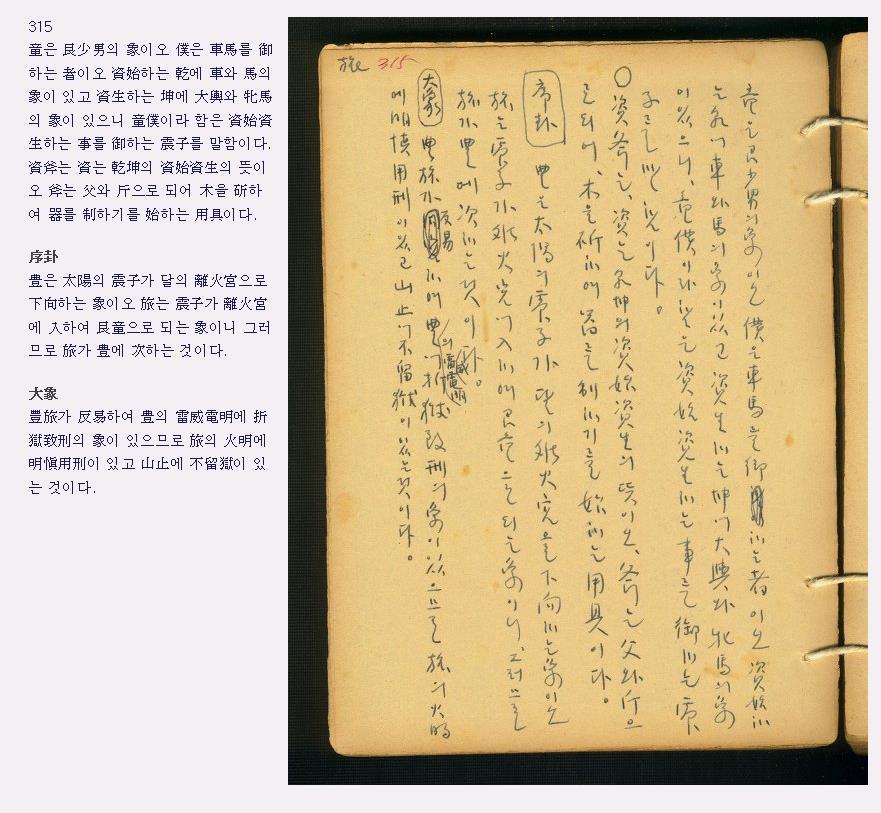 315
童은 艮少男의 象이오 僕은 車馬를 御
하는 者이오 資始하는 乾에 車와 馬의
象이 있고 資生하는 坤에 大興와 牝馬
의 象이 있으니 童僕이라 함은 資始資
生하는 事를 御하는 震子를 말함이다.
資斧는 資는 乾坤의 資始資生의 뜻이
오 斧는 父와 斤으로 되어 木을 斫하
여 器를 制하기를 始하는 用具이다.
序卦
豊은 太陽의 震子가 달의 離火宮으로
下向하는 象이오 旅는 震子가 離火宮
에 入하여 艮童으로 되는 象이니 그러
므로 旅가 豊에 次하는 것이다.
大象
豐旅가 反易하여 豊의 雷威電明에 折
獄致刑의 象이 있으므로 旅의 火明에
明愼用刑이 있고 山止에 不留獄이 있
는 것이다.
旅 315
童은艮少男의象이오 僕은車馬를御하는者이오 資始하
는乾에車와馬의象이있고 資生하는坤에大興와牝馬의象
이있으니、童僕이라함은資始資生하는事를御하는震
子를말함이다。
○資斧는、資는乾坤의資始資生의뜻이오、斧는父와斤으
로되어、木을斫하여器를制하기를始하는用具이다。
序卦 豊은太陽의震子가달의離火宮으로下向하는象이오
旅는震子가離火宮에入하여艮童으로되는象이니、그러므로
旅가豊에次하는것이다。
大象 豊旅가反易하여豊의雷威電明에折獄致刑의象이있으므로旅의火明
에明愼用刑이있고山止에不留獄이있는것이다。